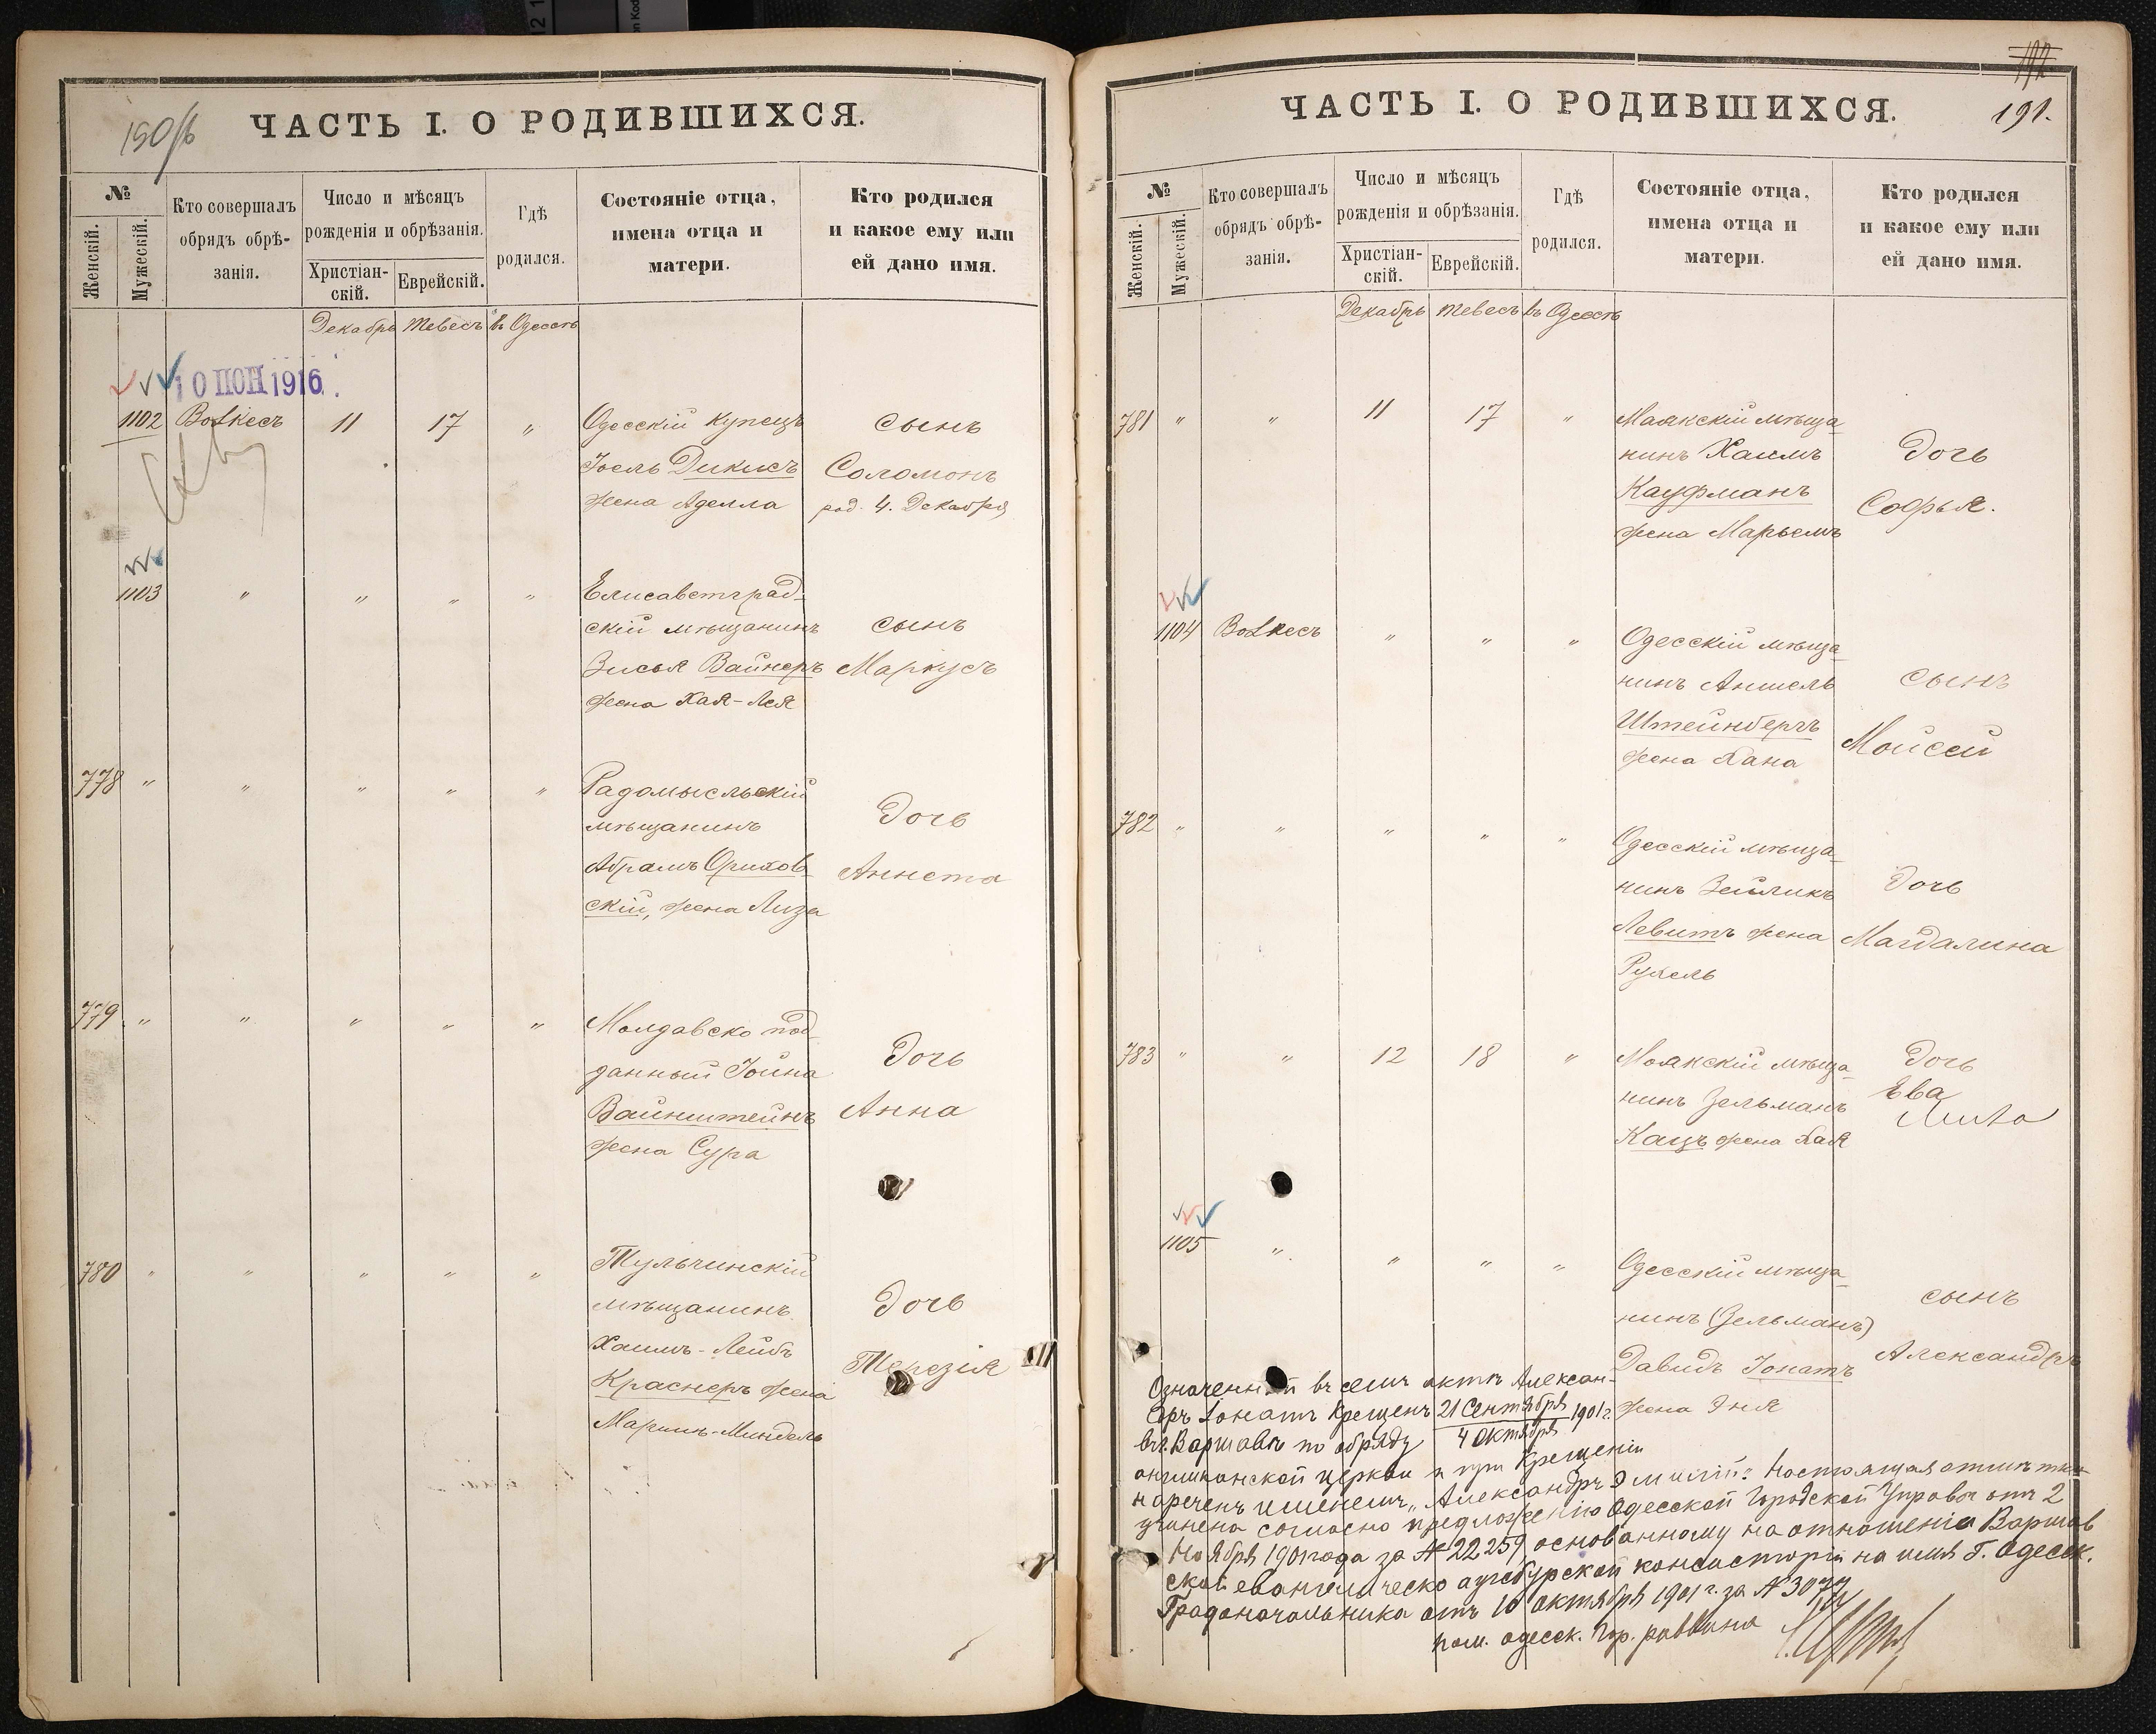 190/б
ЧАСТЬ I. О РОДИВШИХСЯ.
№
Женскій.
Мужескій.
Кто совершалъ
обрядъ обрѣ-
занія.
Число и мѣсяцъ
рожденія и обрѣзанія.
Христіан-
скій.
Еврейскій.
Гдѣ
родился.
Состояніе отца,
имена отца и
матери.
Кто родился
и какое ему или
ей дано имя.
Декабрь Тевесъ въ Одессѣ
10 ІЮН 1916
1102 Волкесъ 11 17 " Одесскій купецъ сынъ
Іосель Дикисъ Соломонъ
жена Аделла род. 4. Декабря
1103 " " " " Елисаветград-
скій мѣщанинъ сынъ
Зисья Вайнеръ Маркусъ
жена Хая-Лея
778 " " " " " Радомысльскій
мѣщанинъ Дочь
Абрамъ Орихов- Аннета
скій, жена Лиза
779 " " " " " Молдавско под-
данный Іойна Дочь
Вайнштейнъ Анна
жена Сура
780 " " " " " Тульчинскій
мѣщанинъ Дочь
Хаимъ-Лейбъ
Краснеръ жена Терезія
Маримъ-Миндель
192
191.
ЧАСТЬ I. О РОДИВШИХСЯ.
№
Женскій.
Мужескій.
Кто совершалъ
обрядъ обрѣ-
занія.
Число и мѣсяцъ
рожденія и обрѣзанія.
Христіан-
скій.
Еврейскій.
Гдѣ
родился.
Состояніе отца,
имена отца и
матери.
Кто родился
и какое ему или
ей дано имя.
Декабрь Тевесъ въ Одессѣ
781 " " 11 17 " Маякскій мѣща-
нинъ Хаимъ Дочь
Кауфманъ Софья.
жена Марьемъ
1104 Волкесъ " " " Одесскій мѣща-
нинъ Аншель сынъ
Штейнбергъ Мойсей
жена Хана
782 " " " " " Одесскій мѣща-
нинъ Зейликъ Дочь
Левитъ жена Магдалина
Рухель
783 " " 12 18 " Маякскій мѣща- Дочь
нинъ Зельманъ Ева
Кацъ жена Хая
1105 " " " " Одесскій мѣща-
нинъ (Зельманъ) сынъ
Давидъ Іонатъ Александръ
жена Эня
Означенный въ семъ актѣ Алексан-
дръ Іонатъ крещенъ 21 Сентября / 4 Октября 1901 г.
въ г. Варшавѣ по обряду
англиканской церкви и при крещеніи
нареченъ именемъ „Александръ Эмилій". Настоящая отмѣтка
учинена согласно предложенію Одесской Городской Управы отъ 2
Ноября 1901 года за № 22259 основанному на отношеніи Варшав
ской евангелическо аугсбурской консисторіи на имя Г. Одесск.
Градоначальника отъ 10 октября 1901 г. за № 3077
пом. одесск. гор. раввина